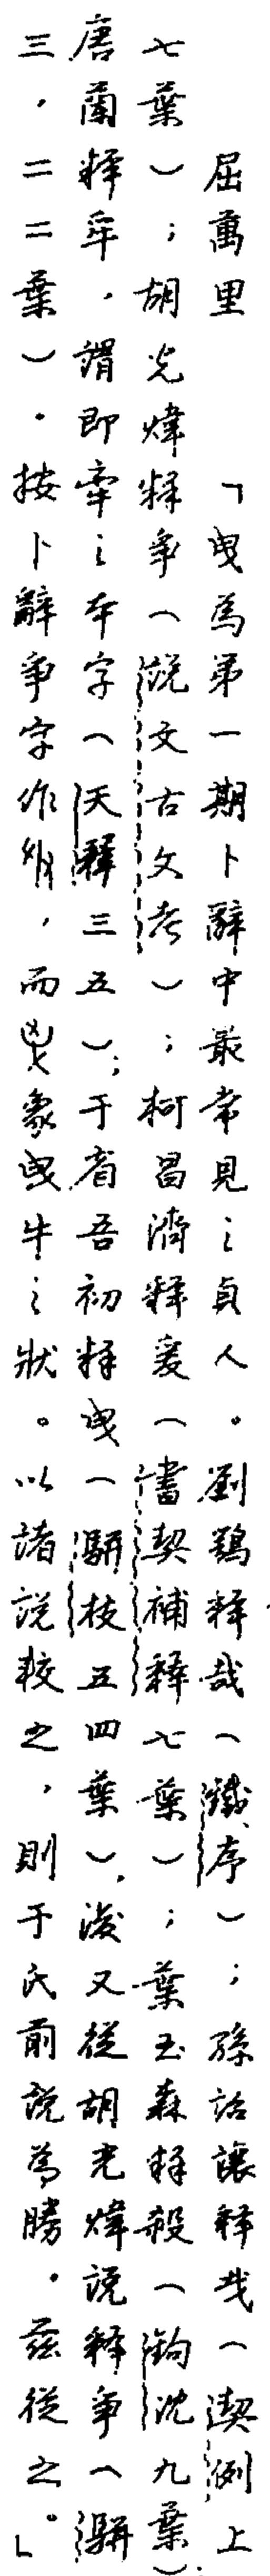 屈萬里　「曳為第一期卜辭中最常見之貞人。劉鶚釋哉（鐵、序）；孫詒讓釋𢦏（契例上
七葉）；胡光煒釋爭（說文古文考）；柯昌濟釋爰（書契補釋七葉）；葉玉森釋殺（鉤沈九葉）；
唐蘭釋牢，謂即牽之本字（天釋三五）；于省吾初釋曳（駢枝五四葉），後又從胡光煒說釋爭（駢
三，二二葉）。按卜辭爭字作，而象曳牛之狀。以諸說較之，則于氏前說為勝。茲從之。」